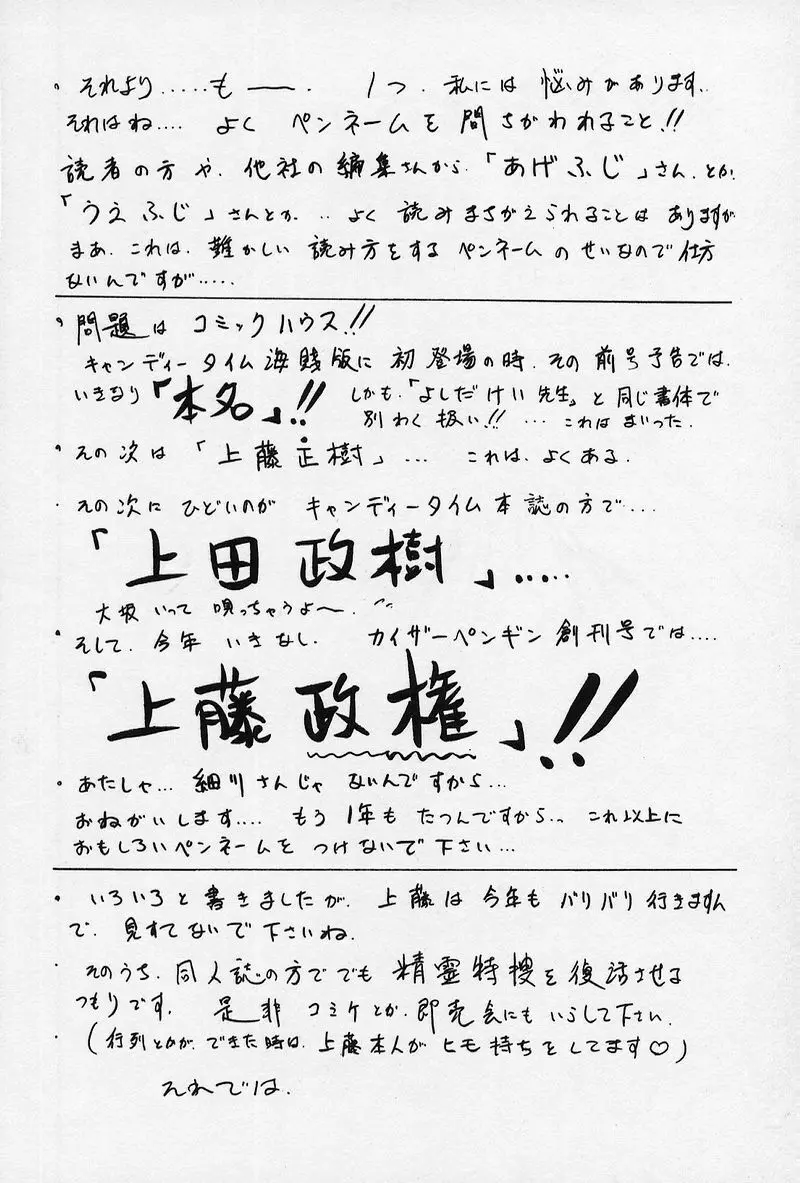 。それより.....も——. 1つ. 私には悩みがあります..
それはね.... よく ペンネームを間ちがわれること!!
読者の方や、他社の編集さんから.「あげふじ」さん、とか.
「うえふじ」さんとか...よく 読みまちがえられることは ありますが
まあ、これは、難かしい 読み方をする ペンネームのせいなので仕方
ないんですが.....
。問題は コミックハウス!!
キャンディータイム海賊版に 初登場の時、その前号予告では、
いきなり「本名」!! しかも、「よしだけい先生」と同じ書体で
別わく扱い!! … これはまいった.
。その次は「上藤正樹」... これは、よくある.
・その次に ひどいのが キャンディータイム本誌の方で...
「上田政樹」.....
大坂 いって 唄っちゃうよ〜.
。そして、今年 いきなし、 カイザーペンギン創刊号では....
「上藤政権」!!
。あたしゃ... 細川さんじゃ ないんですから...
おねがいします.... もう 1年も たつんですから... これ以上に
おもしろいペンネームを つけないで下さい...
。いろいろと書きましたが、上藤は今年も バリバリ行きますん
で、見すてないで下さいね.
・そのうち、同人誌の方ででも 精霊特捜を復活させる
つもりです. 是非 コミケとか、即売会にも いらして下さい.
・(行列とかが、できた時は、上藤本人が ヒモ持ちをしてます♡)
それでは.